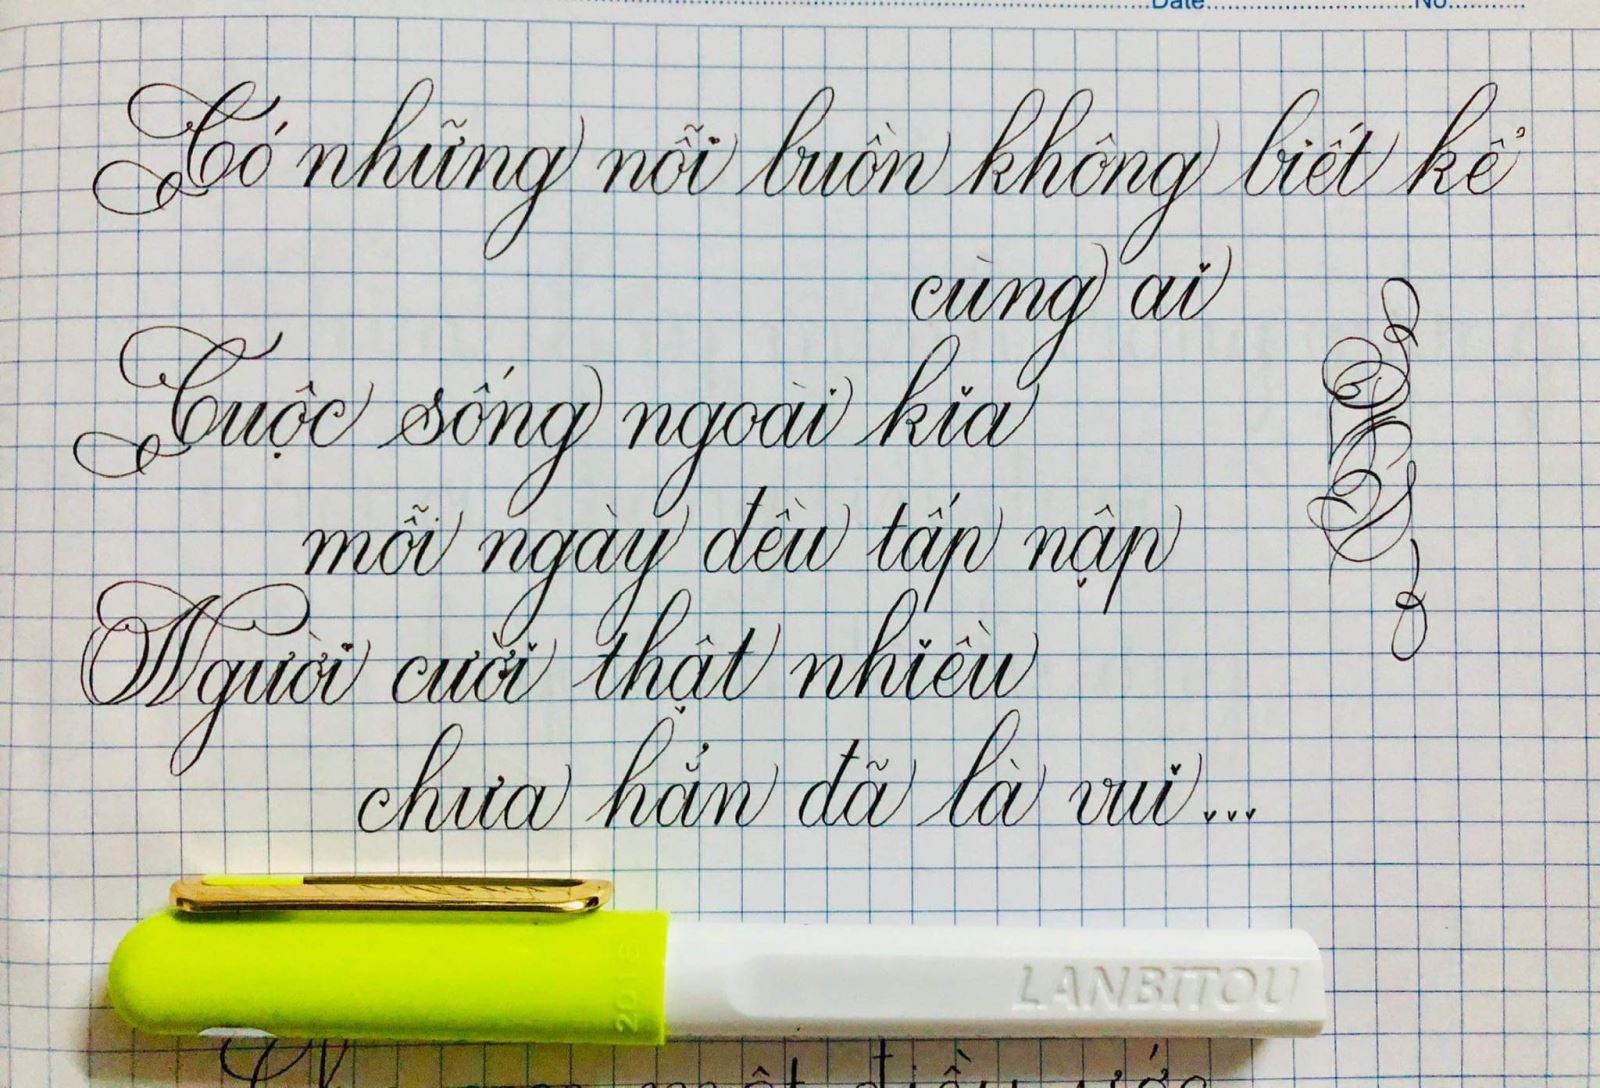 Date............No..........
Có những nỗi buồn không biết kể
cùng ai
Cuộc sống ngoài kia
mỗi ngày đều tấp nập
Người cười thật nhiều
chưa hẳn đã là vui...
2016
LANBITOU
một điều ước